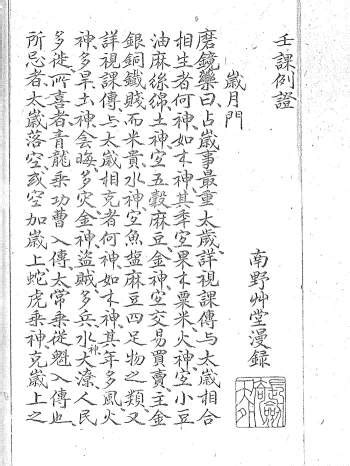 壬課例證
南野艸堂漫録
歲月門
磨鏡藥曰占歲事最重太歲詳視課傳与太歲相合
相生者何神如木神其季宜果木粟米火神宜小豆
油麻絲綿土神宜五穀麻豆金神宜交易買賣主金
銀銅鐵賤而米貴水神宜魚塩麻豆四足物之類又
詳視課傳与太歲相克者何神如木神其年多風火
神多旱土神会晦多灾金神盜賊多兵水神大潦人民
多徙所喜者青龍乘功曹入傳太常乘從魁入傳也
所忌者太歲落空或空加歲上蛇虎乘神克歲上之